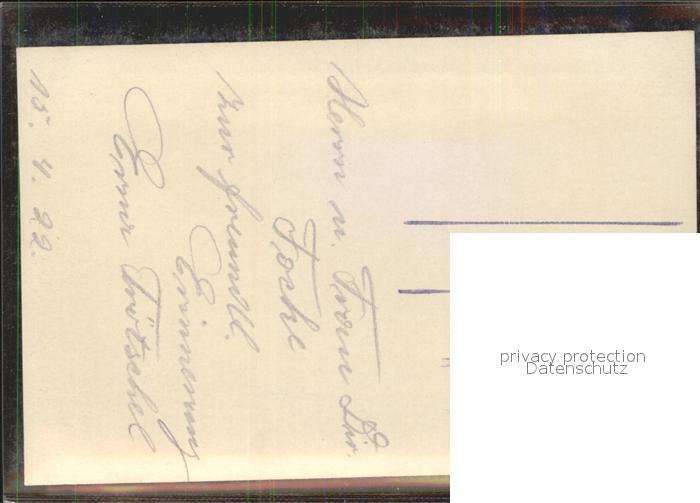 Herrn u. Frau Dir.
Focke
zur freundl.
Erinnerung
Erna Trötschel
15. 4. 22.
privacy protection
Datenschutz